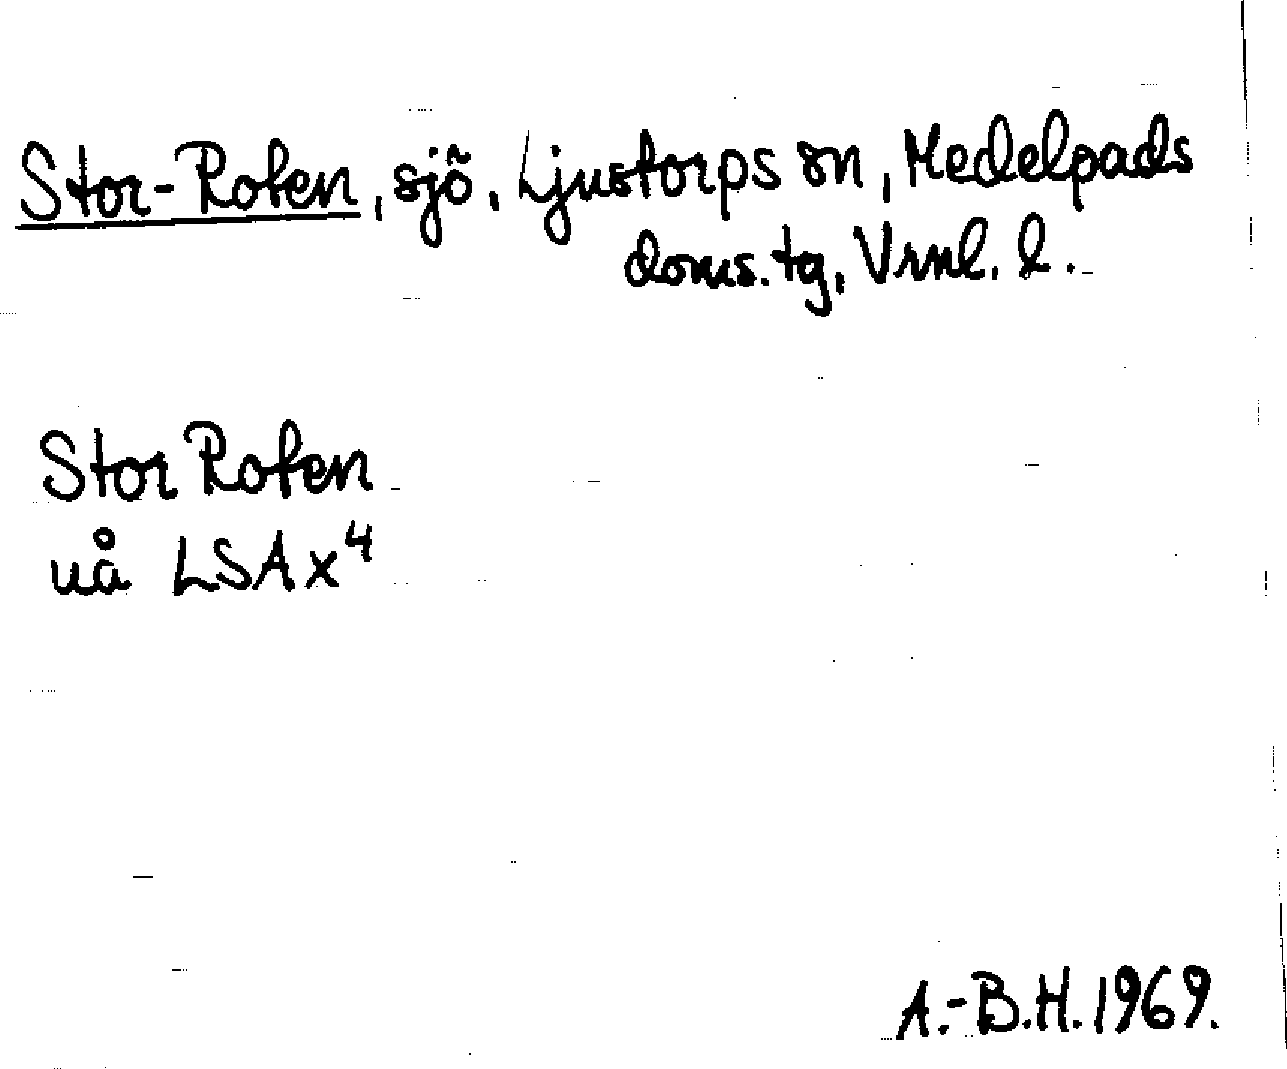 Stor-Roten, sjö, Ljustorps sn, Medelpads
doms. tg, Vrnl. l.
Stor Roten
uå LSA x⁴
A.-B.H. 1969.